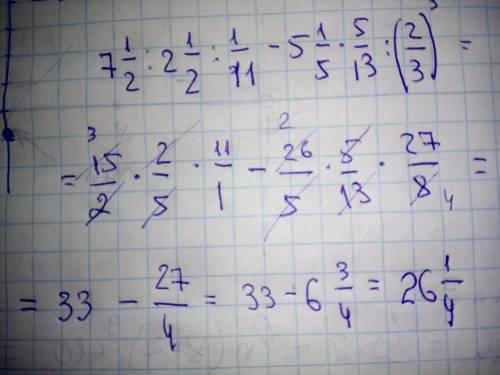 7 1/2 : 2 1/2 : 1/11 - 5 1/5 · 5/13 : (2/3)³ =
= 15/2 · 2/5 · 11/1 - 26/5 · 5/13 · 27/8 =
= 33 - 27/4 = 33 - 6 3/4 = 26 1/4